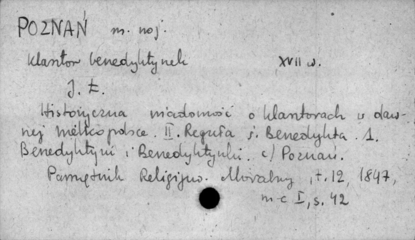 POZNAŃ m. woj.
klasztor benedyktynek XVII w.
J. Ł.
Historyczna wiadomość o klasztorach w daw-
nej Wielkopolsce. II. Reguła ś. Benedykta. 1.
Benedyktyni i Benedyktynki. c/ Poznań.
Pamiętnik Religijno. Moralny, t. 12, 1847,
n-c I, s. 42